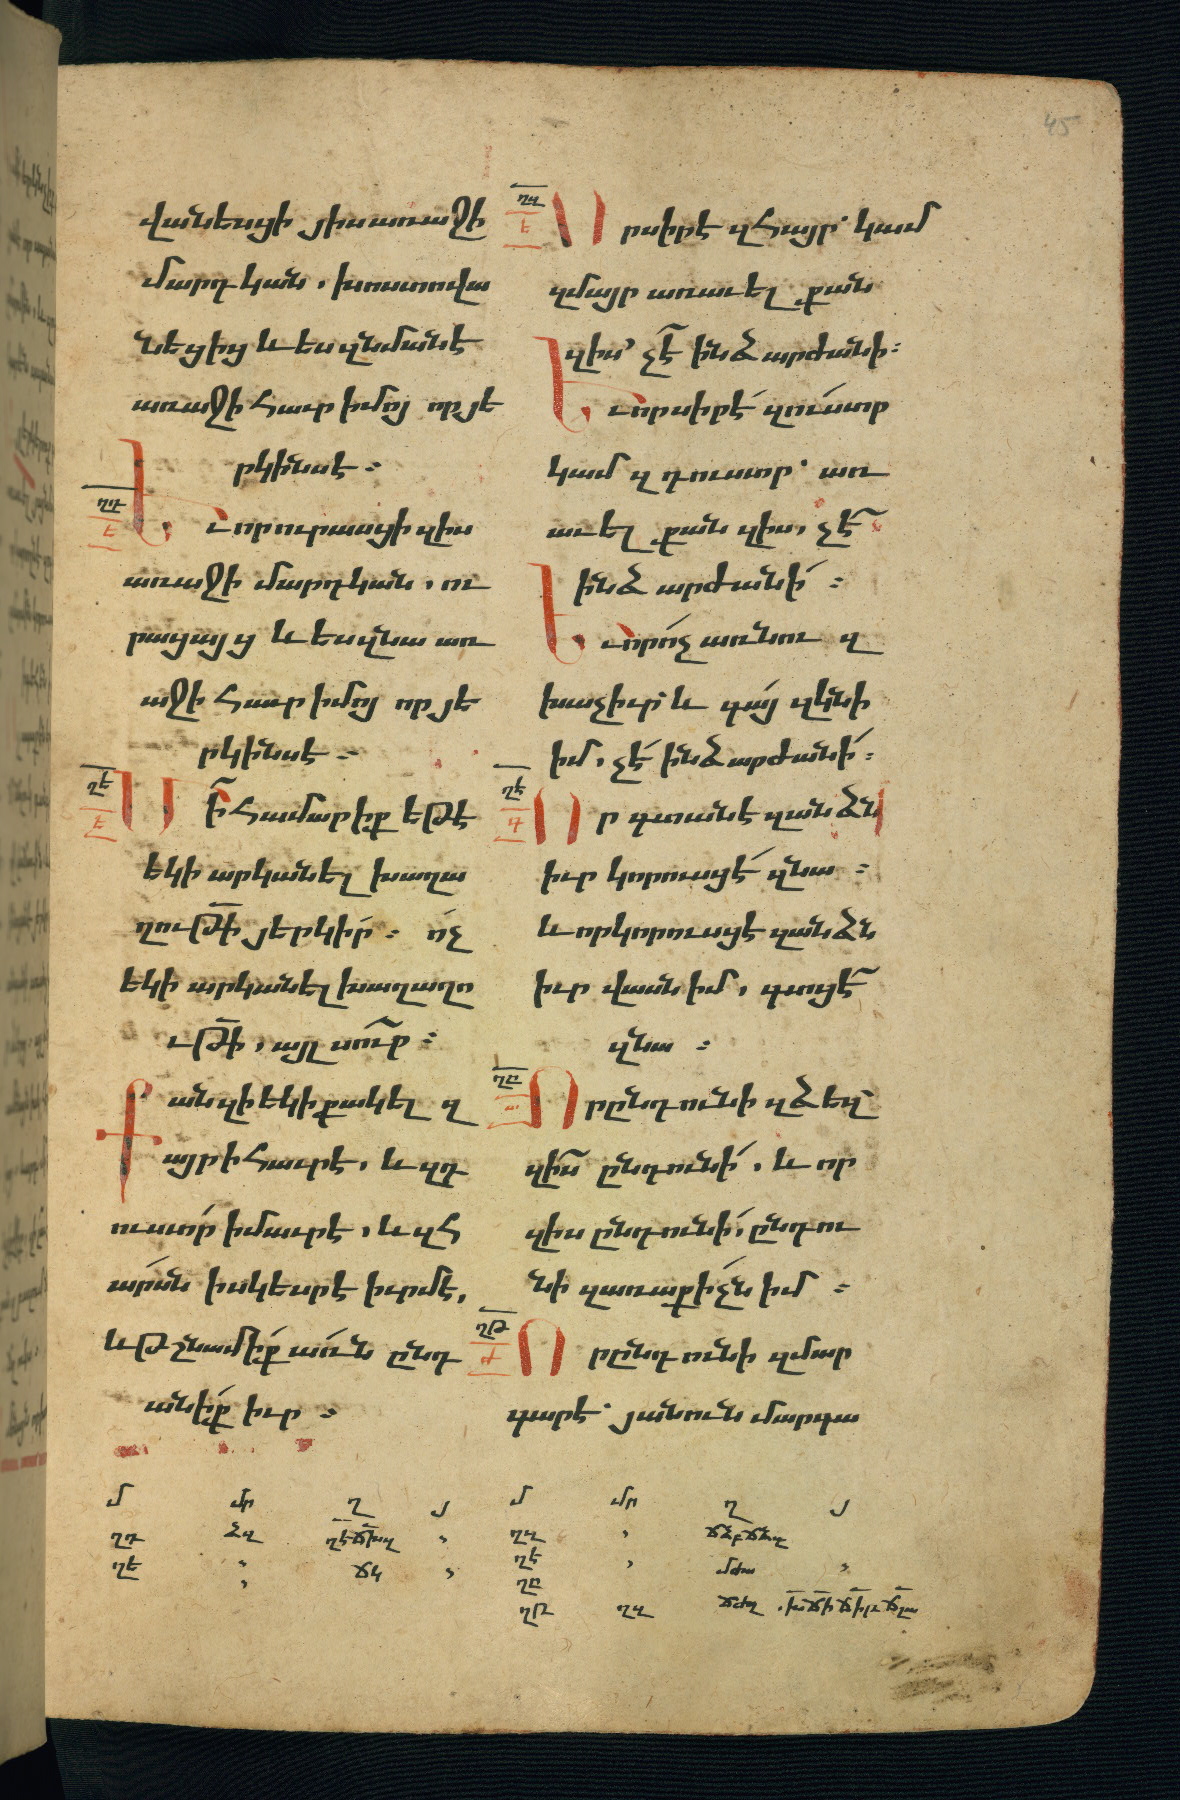 վանեսցի յիս առաջի
մարդկան, խոստովա
նեցից և ես զնմանէ
առաջի հաւր իմոյ որ յե
րկինս է։
ղդ
ե
Եւ որ ուրասցի զիս
առաջի մարդկան, ու
րացայց և ես զնա առ
աջի հաւր իմոյ որ յե
րկինս է։
ղե
ե
Մի՛ համարիք եթէ
եկի արկանել խաղա
ղութի յերկիր։ ո՛չ
եկի արկանել խաղաղո
ւթի, այլ սուր։
Քանզի եկի քակել զ
այր ի հաւրէ, և զդ
ուստր ի մաւրէ, և զհ
արսն ի սկեսրէ իւրմէ,
և թշնամիք առն ընդ
անիք իւր։
ղզ
ե
Որ սիրէ զհայր՝ կամ
զմայր առաւել քան
զիս՝ չէ ինձ արժանի։
Եւ որ սիրէ զուստր
կամ զդուստր՝ առ
աւել քան զիս, չէ
ինձ արժանի։
Եւ որ ոչ առնու զ
խաչ իւր՝ և գայ զկնի
իմ, չէ ինձ արժանի։
ղէ
գ
Որ գտանէ զանձն
իւր կորուսցէ զնա։
և որ կորուսցէ զանձն
իւր վասն իմ, գտցէ
զնա։
ղը
ա
Որ ընդունի զձեզ՝
զիս ընդունի, և որ
զիս ընդունի, ընդու
նի զառաքիչն իմ։
ղթ
ժ
Որ ընդունի զմար
գարէ՝ յանուն մարգա
մ մր ղ յ
ղդ
ղե ճկ
մ մր ղ յ
ղզ
ղէ
ղը
ղթ ղզ
45